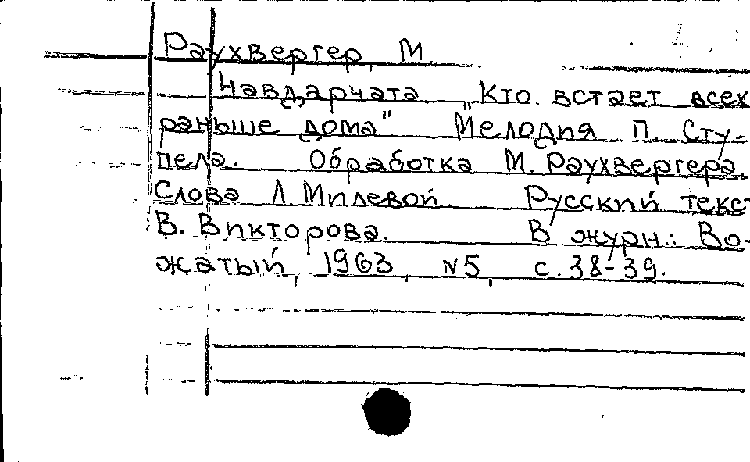 Раухвергер, М
Навдарчата „Кто встает всех
раньше дома" Мелодия П. Сту-
пела. Обработка М. Раухвергера.
Слова Л. Милевой Русский текс
В. Викторова. В журн.: Во-
жатый, 1963, №5, с. 38-39.